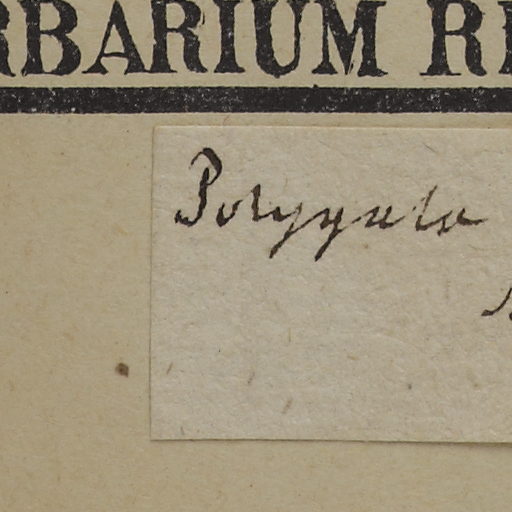 RBARIUM R
Polygala